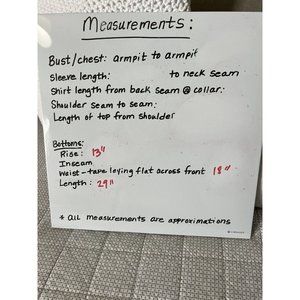 Measurements:
Bust/chest: armpit to armpit
Sleeve length: to neck seam
Shirt length from back seam @ collar:
Shoulder seam to seam:
Length of top from shoulder
Bottoms:
Rise: 13"
Inseam
Waist - tape laying flat across front 18"
Length: 29"
* All measurements are approximations